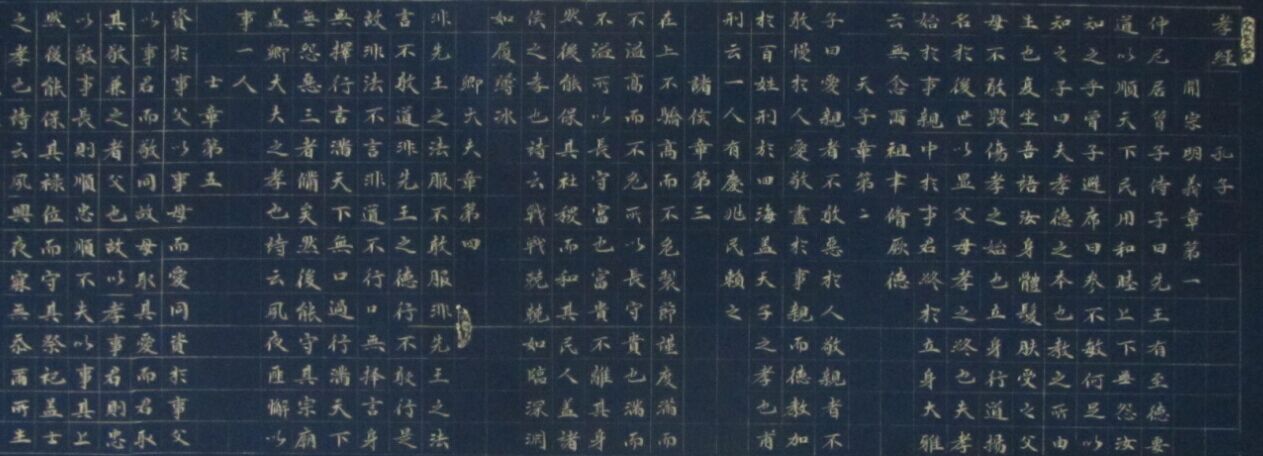 孝經 孔子
開宗明義章第一
仲尼居曾子侍子曰先王有至德要
道以順天下民用和睦上下無怨汝
知之乎曾子避席曰參不敏何足以
知之子曰夫孝德之本也教之所由
生也復坐吾語汝身體髮膚受之父
母不敢毀傷孝之始也立身行道揚
名於後世以顯父母孝之終也夫孝
始於事親中於事君終於立身大雅
云無念爾祖聿脩厥德
天子章第二
子曰愛親者不敢惡於人敬親者不
敢慢於人愛敬盡於事親而德教加
於百姓刑於四海蓋天子之孝也甫
刑云一人有慶兆民賴之
諸侯章第三
在上不驕高而不危制節謹度滿而
不溢高而不危所以長守貴也滿而
不溢可以長守富也富貴不離其身
然後能保其社稷而和其民人蓋諸
侯之孝也詩云戰戰兢兢如臨深淵
如履薄冰
卿大夫章第四
非先王之法服不敢服非先王之法
言不敢道非先王之德行不敢行是
故非法不言非道不行口無擇言身
無擇行言滿天下無口過行滿天下
無怨惡三者備矣然後能守其宗廟
蓋卿大夫之孝也詩云夙夜匪懈以
事一人
士章第五
資於事父以事母而愛同資於事父
以事君而敬同故母取其愛而君取
其敬兼之者父也故以孝事君則忠
以敬事長則順忠順不失以事其上
然後能保其祿位而守其祭祀蓋士
之孝也詩云夙興夜寐無忝爾所生